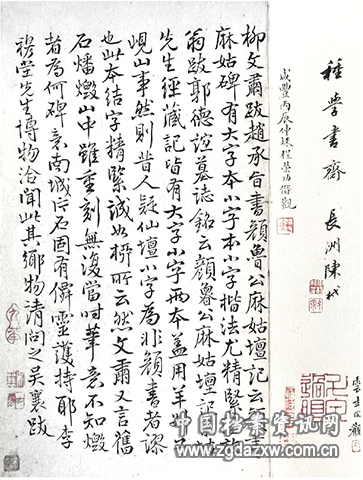 種學書齋 長洲陳
咸豐丙辰仲 程榮功借觀
柳文肅跋趙承旨書顏魯公麻姑壇記云顏書
麻姑碑有大字本小字本小字楷法尤精緊
翁跋郭德誼墓誌銘云顏魯公麻姑壇
先生徑藏記皆有大字小字兩本蓋用羊叔子
峴山事然則昔人疑仙壇小字為非顏書者謬
也此本結字精緊誠如柳所云然文肅又言舊
石燔燬山中雖重刻無復當時筆意不知燬
者為何碑意南城片石固有靈護持耶李
穆堂先生博物洽聞此其鄉物請問之吳襄跋
中国档案资讯网
www.zgdazxw.com.cn